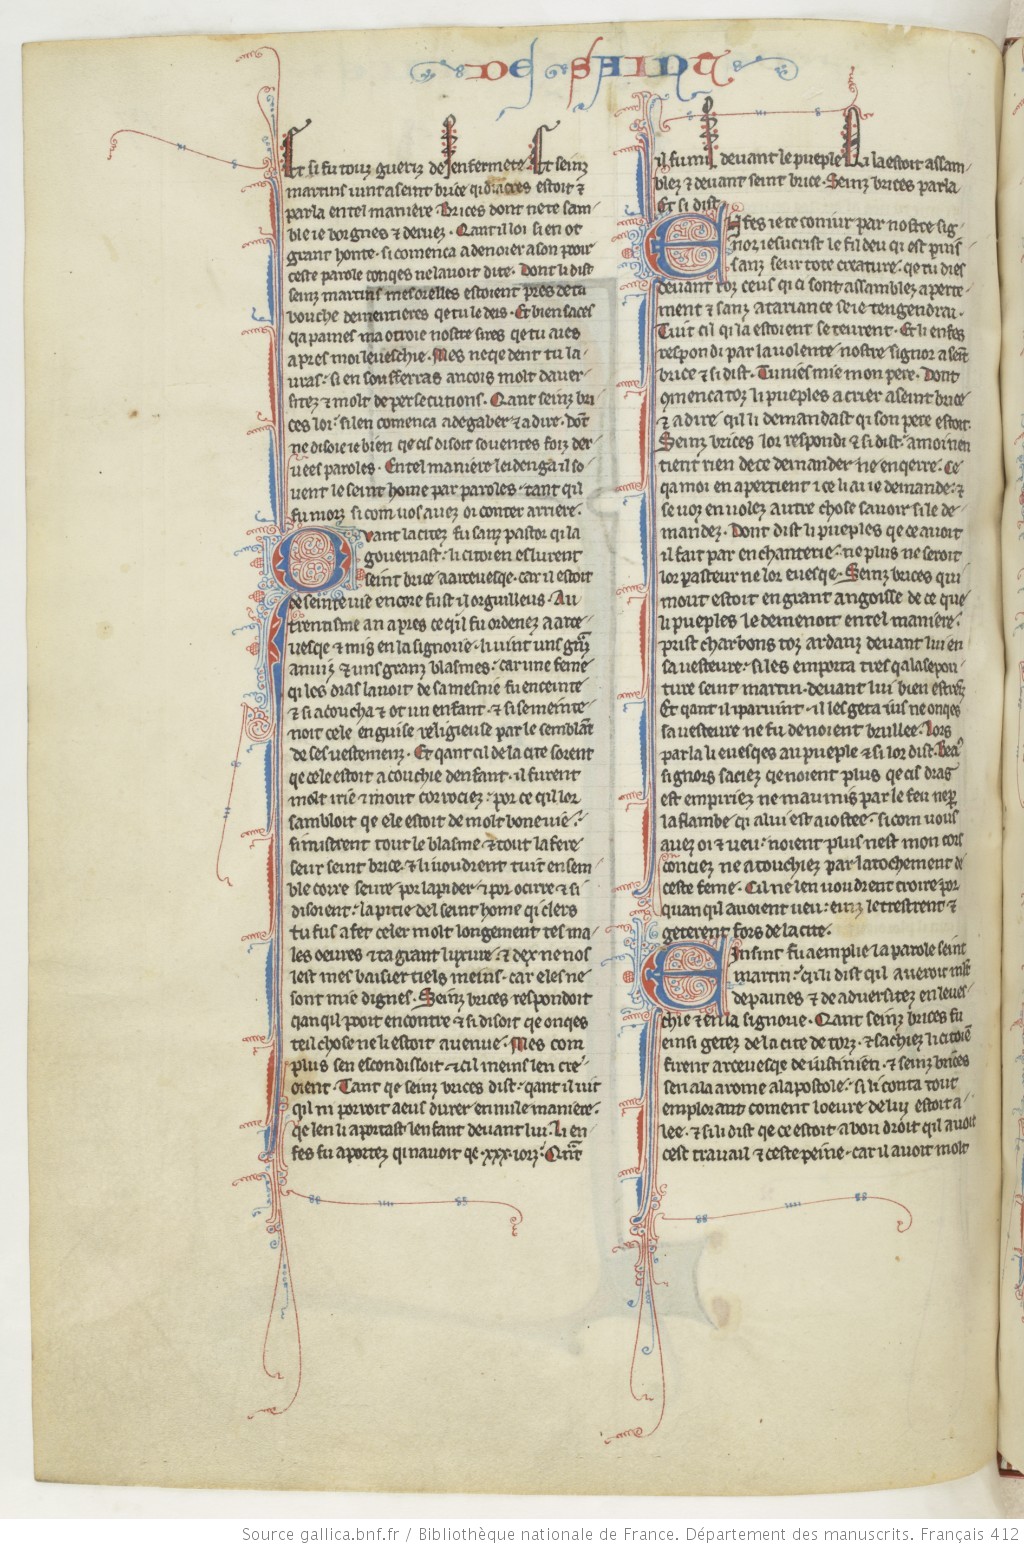 DE SAINT
Et si fu touz gueriz de lenfermete. Et seinz
martins uint a seint brice qi diacres estoit ⁊
parla en tel maniere. Brices dont ne te sam-
ble ie borgnes ⁊ deruez. Qant il loi si en ot
grant honte. si comenca a denoier a son pooir
ceste parole conqes ne lauoit dite. Dont li dist
seinz martins mes oreilles estoient pres de ta
bouche dementieres qe tu le deis. Et bien saces
qa paines ma otroie nostre sires qe tu aies
apres moi leueschie. Mes neqedent tu la-
uras: si en soufferras ancois molt dauer-
sitez ⁊ molt de persecutions. Qant seinz bri
ces loi: si len comenca a degaber ⁊ a dire. Dōt
ne disoie ie bien qe cil disoit souentes foiz der
uees paroles. En tel maniere leidenga il so-
uent le seint home par paroles. tant qil
fu morz si com uos auez oi conter arriere.
Quant la citez fu sanz pastor qi la
gouernast: li citoien eslurent
seint brice a arceuesqe. car il estoit
de seinte uie encore fust il orguilleus. Au
trentisme an apres ce qil fu ordenez a arce-
uesqe ⁊ mis en la signorie. li uint uns grāz
anuiz ⁊ uns granz blasmes: car une feme
qi les dras lauoit de sa mesnie fu enceinte
⁊ si acoucha ⁊ ot un enfant. ⁊ si se meinte-
noit cele en guise religieuse par le semblāt
de ses uestemenz. Et qant cil de la cite sorent
qe cele estoit acouchie denfant. il furent
molt irie ⁊ mout corrociez: por ce qil lor
sambloit qe ele estoit de molt bone uie.
si mistrent tout le blasme ⁊ tout lafere
seur seint brice. ⁊ li uoudrent tuit ensem-
ble corre seure por lapider ⁊ por ocirre ⁊ si
disoient: la pitie del seint home qi clers
tu fus a fet celer molt longement tes ma-
les oeures ⁊ ta grant luxure. ⁊ dex ne nos
leist mes baisier tiels meins. car eles ne
sont mie dignes. Seinz brices respondoit
qan qil pooit encontre ⁊ si disoit qe onqes
teil chose ne li estoit auenue. Mes com
plus sen escondissoit. ⁊ cil meins len cre-
oient. Tant qe seinz brices dist. qant il uit
qil ni porroit a eus durer en nile maniere.
qe len li aportast lenfant deuant lui. Li en-
fes fu aportez qi nauoit qe .xxx. iorz. Qāt
il fu mi deuant le pueple qi la estoit assam-
blez ⁊ deuant seint brice. Seinz brices parla
Et si dist.
Enfes ie te coniur par nostre sig-
nor iesucrist le fil deu qi est puis-
sanz seur tote creature. qe tu dies
deuant toz ceus qi ci sont assamblez aperte-
ment ⁊ sanz atariance se ie tengendrai.
Tuit cil qi la estoient se teurent. Et li enfes
respondi par la uolente nostre signor a seīt
brice ⁊ si dist. Tu nies mie mon pere. Dont
comenca toz li pueples a crier a seint brice
⁊ a dire qil li demandast qi son pere estoit.
Seinz brices lor respondi ⁊ si dist. a moi nen
tient rien de ce demander ne enqerre. Ce
qa moi en apertient ⁊ ce li ai ie demande: ⁊
se uoz en uolez autre chose sauoir si le de-
mandez. Dont dist li pueples qe ce auoit
il fait par enchanterie. ne plus ne seroit
lor pasteur ne lor euesqe. Seinz brices qui
mout estoit en grant angoisse de ce que
li pueples le demenoit en tel maniere.
prist charbons toz ardanz deuant lui en
sa uesteure. si les emporta tres qa la sepou-
ture seint martin. deuant lui bien estroiz
Et qant il i paruint. il les geta ius ne onqes
sa uesteure ne fu de noient brullee. Lors
parla li euesqes au pueple ⁊ si lor dist. bea
signors saciez qe noient plus qe cis dras
est empiriez ne maumis par le feu ne p
la flambe qi a lui est aiostee. si com uous
auez oi ⁊ ueu: noient plus nest mon cors
conciez ne atouchiez par latochement de
ceste feme. Cil ne len uoudrent croire por
quan qil auoient ueu: einz le trestrent ⁊
geterent fors de la cite.
Einsint fu aemplie la parole seint
martin: qi li dist qil aueroit mlt
de paines ⁊ de aduersitez en leues-
chie ⁊ en la signorie. Qant seinz brices fu
einsi getez de la cite de torz. ⁊ sachiez li citoiē
firent arceuesqe de iustinien. ⁊ seinz brices
sen ala a rome a lapostole. si li conta tout
emplorant coment loeure de lui estoit a-
lee. ⁊ si li dist qe ce estoit a bon droit qil auoit
cest trauail ⁊ ceste peine. car il auoit molt
Source gallica.bnf.fr / Bibliothèque nationale de France. Département des manuscrits. Français 412